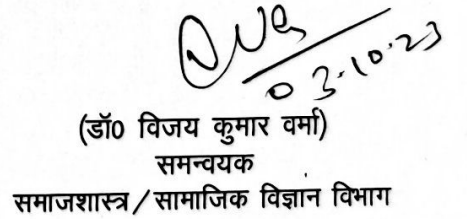 03.10.23
(डॉ0 विजय कुमार वर्मा)
समन्वयक
समाजशास्त्र/सामाजिक विज्ञान विभाग